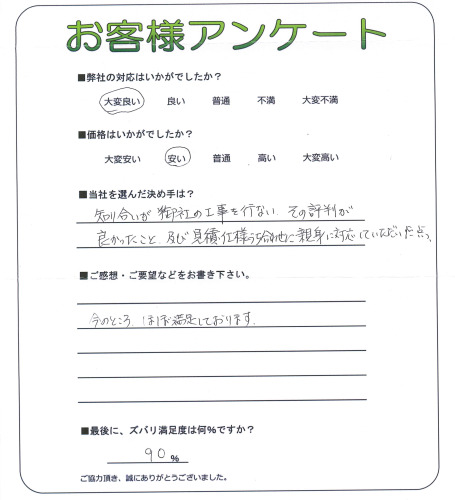 お客様アンケート
■弊社の対応はいかがでしたか？
大変良い 良い 普通 不満 大変不満
■価格はいかがでしたか？
大変安い 安い 普通 高い 大変高い
■当社を選んだ決め手は？
知り合いが御社の工事を行ない、その評判が
良かったこと、及び見積、仕様の打合せに親身に対応していただいた点。
■ご感想・ご要望などをお書き下さい。
今のところ、ほぼ満足しております。
■最後に、ズバリ満足度は何％ですか？
90 ％
ご協力頂き、誠にありがとうございました。